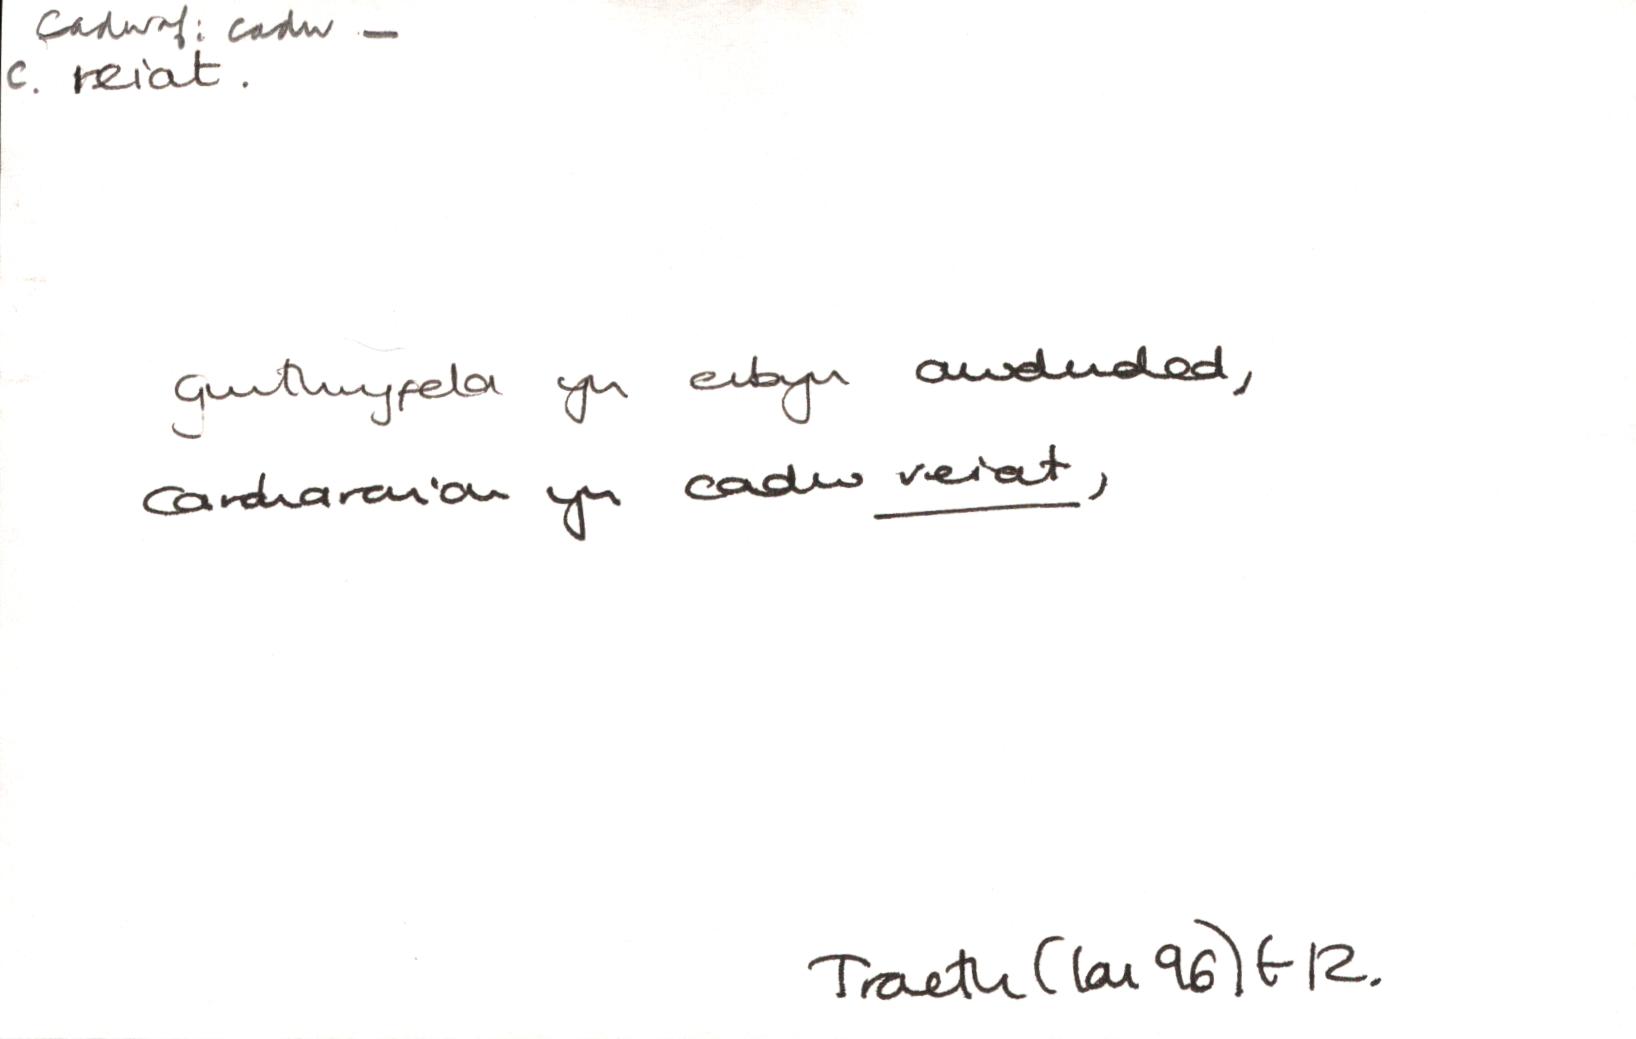 Cadwaf: cadw —
c. reiat.
gwrthryfela yn erbyn awdurdod,
carcharorion yn cadw reiat,
Traeth (Ion 96) t 12.